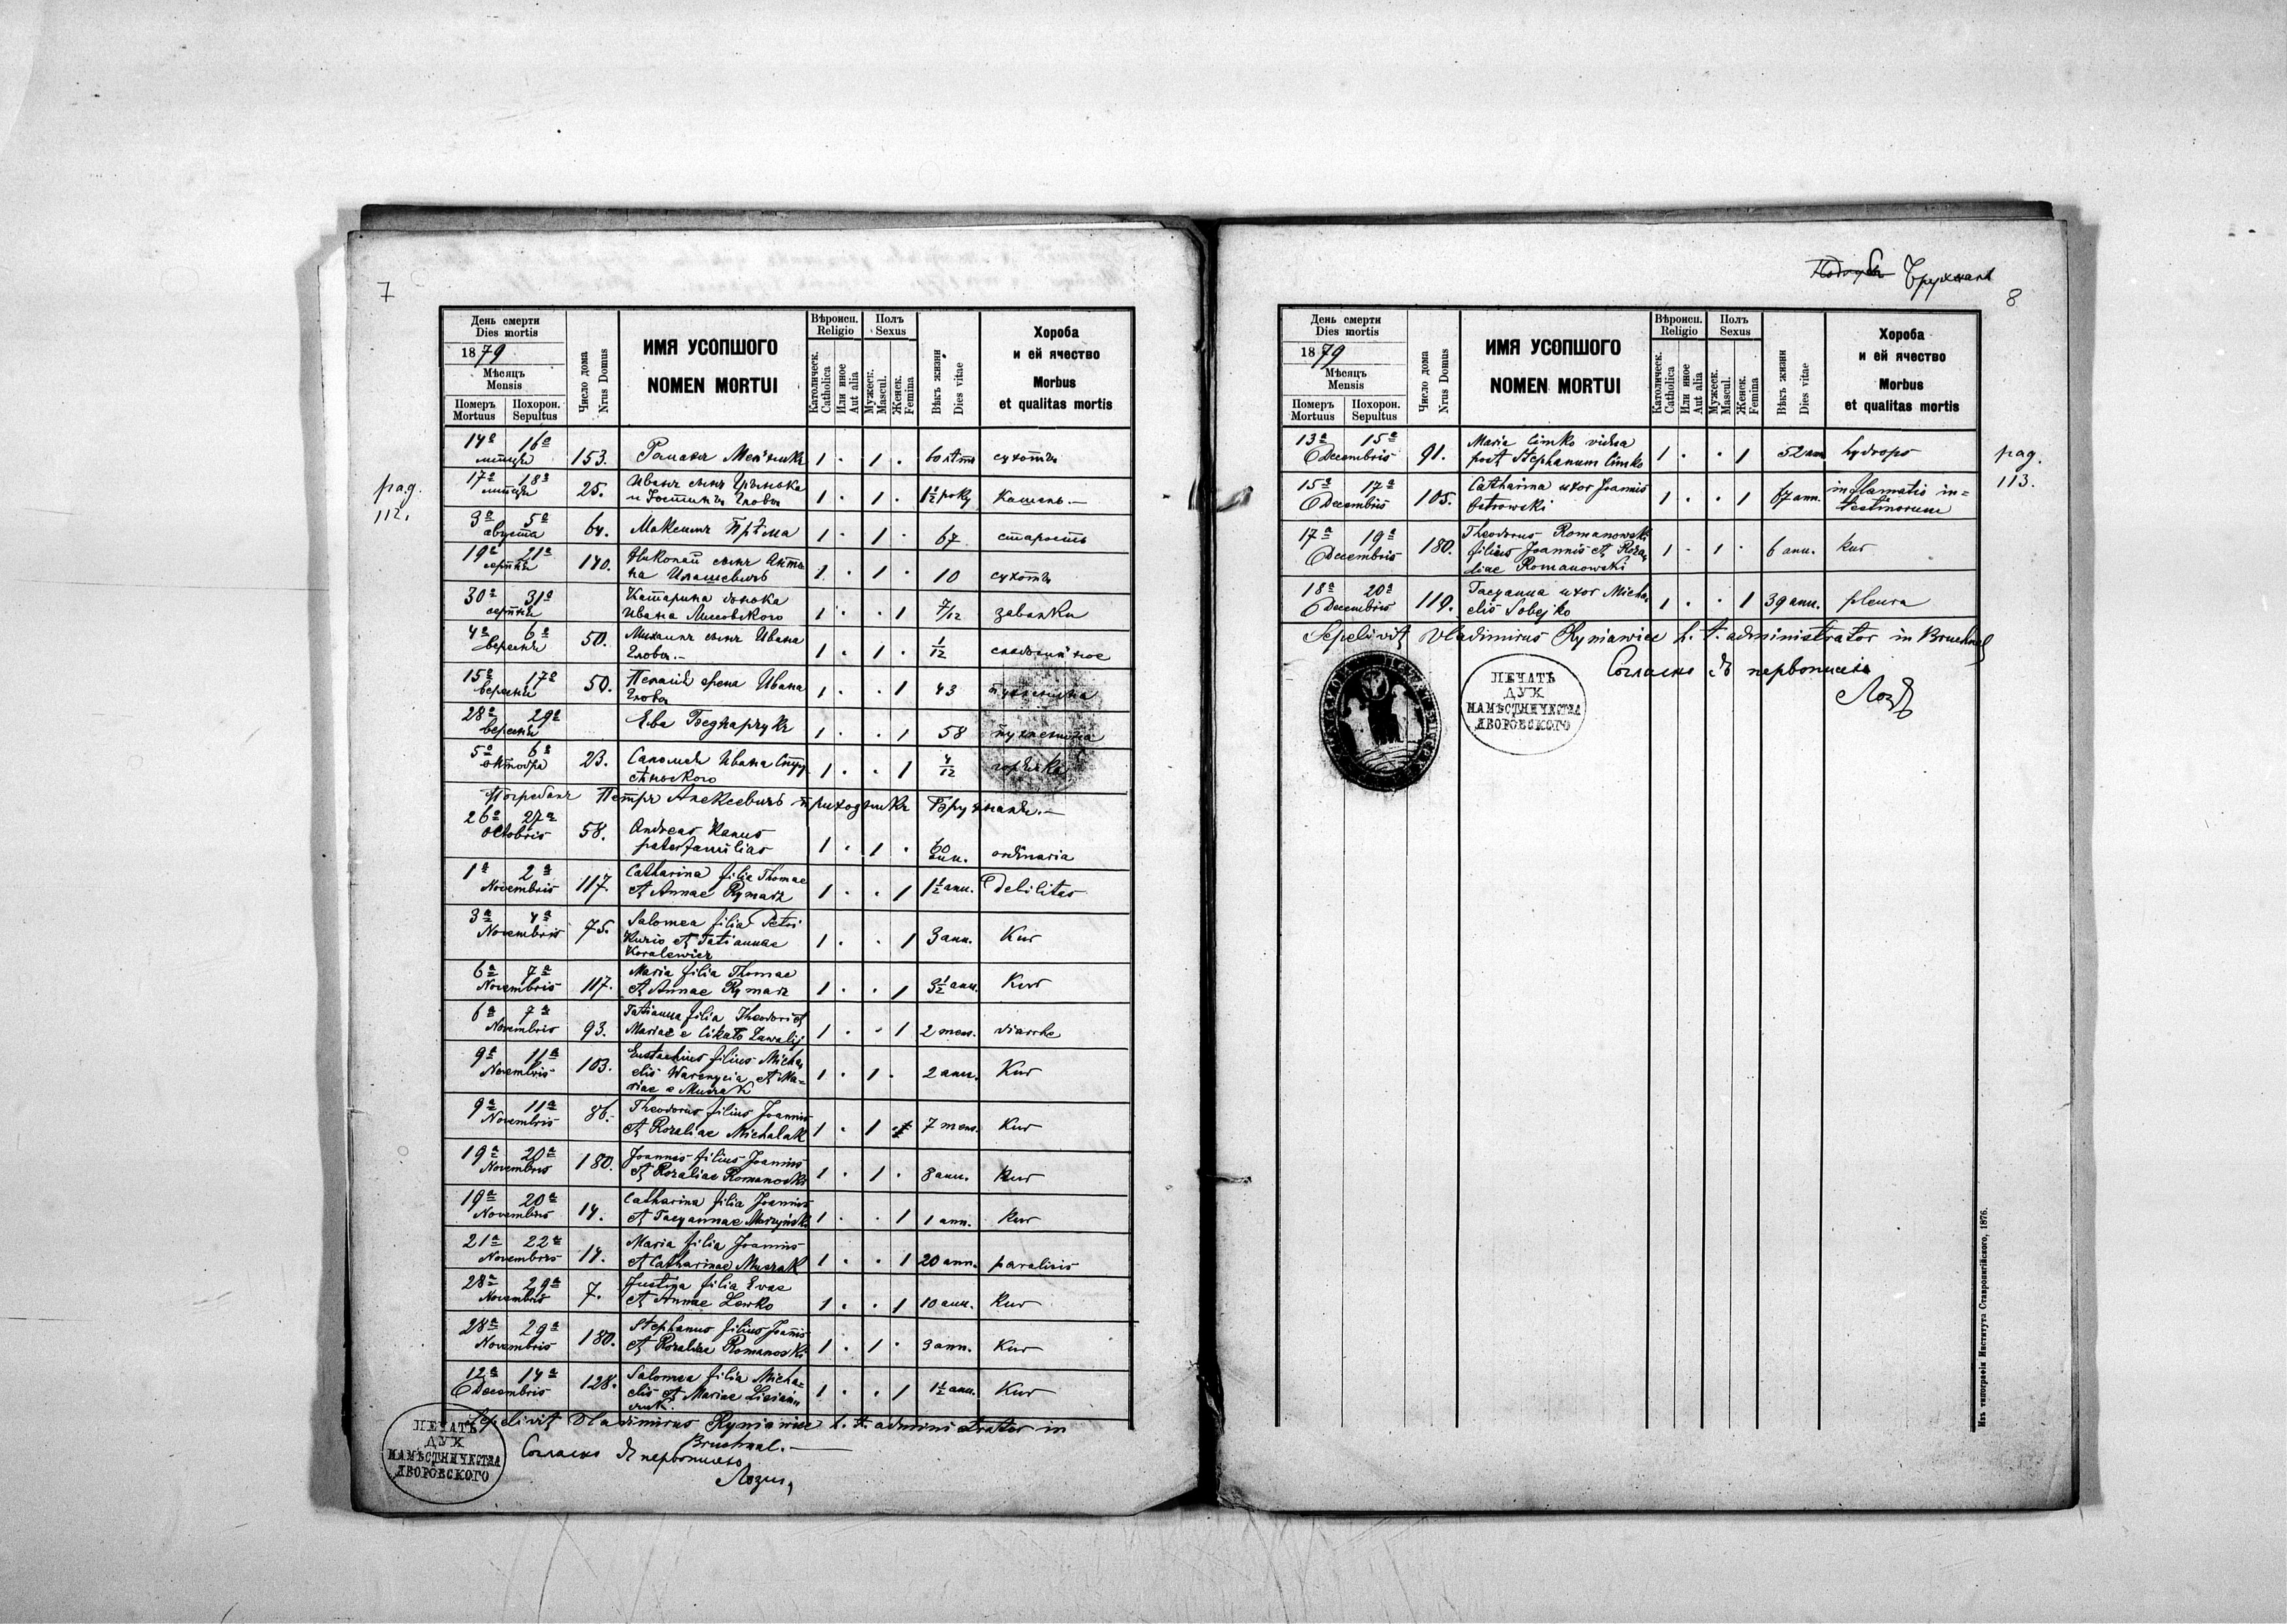 7
pag.
112.
День смерти
Dies mortis
1879
Мѣсяцъ
Mensis
Померъ Mortuus
Похорон. Sepultus
Число дома
Nrus Domus
ИМЯ УСОПШОГО
NOMEN MORTUI
Вѣроисп.
Religio
Католическ.
Catholica
Или иное
Aut alia
Полъ
Sexus
Мужеск.
Mascul.
Женск.
Femina
Вѣкъ жизни
Dies vitae
Хороба
и ей ячество
Morbus
et qualitas mortis
14а 16а 153. Романъ 1 . 1 . 60
17а 18а 25. Иванъ сынъ Грынька 1 . 1 . 1½ року кашель.—
3а 5а августа 64. Максимъ 1 . 1 . 67 старость
19а 21а серпня 140. Николай сынъ 1 . 1 . 10
30а 31а серпня Катарина донька
Ивана Лисовского 1 . . 1 7/12
4а 6а вересня 50. Михаилъ сынъ Ивана 1 . 1 . 1/12
15а 17а вересня 50. жена Ивана 1 . . 1 43
28а 29а вересня Ева Беднарчукъ 1 . . 1 58
5а 6а октобра 23. Саломея Ивана 1 . . 1 4/12
Погребалъ Петръ Алексевичъ приходникъ Брухналя.—
26а 27а Octobris 58. Andreas Hanus
paterfamilias 1 . 1 . 60 ann. ordinaria
1а 2а Novembris 117. Catharina filia Thomae
et Annae Rymarz 1 . . 1 1½ ann. Debilitas
3а 4а Novembris 75. Salomea filia Petri
Kuzio et Tatiannae
Koralewicz 1 . . 1 3 ann. Kur
6а 7а Novembris 117. Maria filia Thomae
et Annae Rymarz 1 . . 1 3½ ann. Kur
6а 7а Novembris 93. Tatianna filia Theodori et
Mariae e Cikało Zawalij 1 . . 1 2 mens. diarrhe
9а 11а Novembris 103. Eustachius filius Micha
elis Warenycia et Ma=
riae e Muszak 1 . 1 . 2 ann. Kur
9а 11а Novembris 86. Theodorus filius Joannis
et Rozaliae Michalak 1 . 1 . 7 mens. Kur
19а 20а Novembris 180. Joannes filius Joannis
et Rozaliae Romanoski 1 . 1 . 8 ann. Kur
19а 20а Novembris 14. Catharina filia Joannis
et Tacyannae 1 . . 1 1 ann. Kur
21а 22а Novembris 14. Maria filia Joannis
et Catharinae Muszak 1 . . 1 20 ann. paralisis
28а 29а Novembris 7. Justina filia
et Annae Lewko 1 . . 1 10 ann. Kur
28а 29а Novembris 180. Stephanus filius Joannis
et Rozaliae Romanoski 1 . 1 . 3 ann. Kur
12а 14а Decembris 128. Salomea filia Micha=
elis et Mariae 1 . . 1 1½ ann. Kur
Sepelivit Vladimirus Ryniawiec h. t. administrator in
Bruchnal.—
Согласно
ПЕЧАТЬ
ДУХ
НАМѢСТНИЧЕСТВА
ЯВОРОВСКОГО
Брухналь
8
День смерти
Dies mortis
1879
Мѣсяцъ
Mensis
Померъ Mortuus
Похорон. Sepultus
Число дома
Nrus Domus
ИМЯ УСОПШОГО
NOMEN MORTUI
Вѣроисп.
Religio
Католическ.
Catholica
Или иное
Aut alia
Полъ
Sexus
Мужеск.
Mascul.
Женск.
Femina
Вѣкъ жизни
Dies vitae
Хороба
и ей ячество
Morbus
et qualitas mortis
13а 15а Decembris 91. Maria Cimko vidua
post Stephanum Cimko 1 . . 1 52 ann. hydrops
pag.
113.
15а 17а Decembris 105. Catharina uxor Joannis
Ostrowski 1 . . 1 67 ann. inflamatio in=
testinorum
17а 19а Decembris 180. Theodorus Romanowski
filius Joannis et Roza
liae Romanowski 1 . 1 . 6 ann. Kur
18а 20а Decembris 119. Tacyanna uxor Micha
elis Sobejko 1 . . 1 39 ann. pleura
Sepelivit Vladimirus Ryniawiec h. t. administrator in Bruchnal
Согласно
ПЕЧАТЬ
ДУХ
НАМѢСТНИЧЕСТВА
ЯВОРОВСКОГО
Изъ типографіи Института Ставропигійского, 1876.